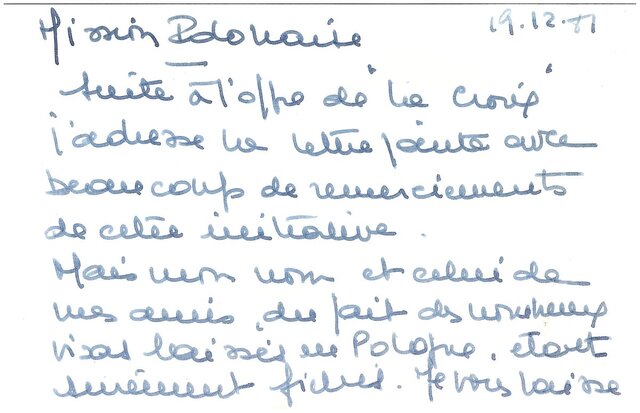 Mission Polonaise 19.12.81
Suite à l'offre de "La Croix"
j'adresse la lettre jointe avec
beaucoup de remerciements
de cette initiative.
Mais mon nom et celui de
mes amis, du fait de nombreux
visas laissés en Pologne, étant
sûrement fichés. Je vous laisse